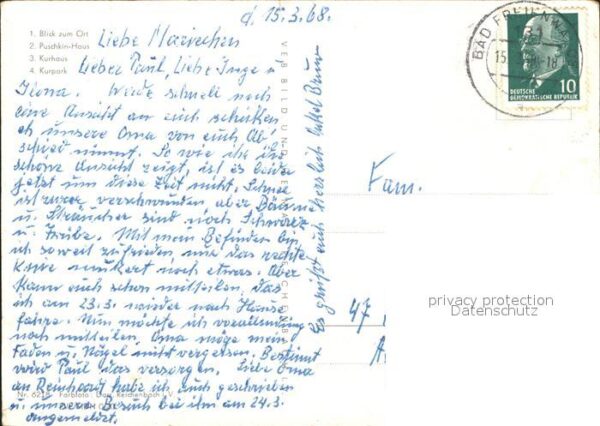 d. 15.3.68.
1. Blick zum Ort
2. Puschkin-Haus
3. Kurhaus
4. Kurpark
Liebe Mariechen
Lieber Paul, Liebe Inge u.
Ilona. Werde schnell noch
eine Ansicht an euch schicken
eh unsere Oma von euch Ab-
schied nimmt. So wie ihr die
schöne Ansicht zeigt, ist es leider
jetzt um diese Zeit nicht. Schnee
ist zwar verschwunden aber Bäume
u. Sträucher sind noch Schwarz
u. Trübe. Mit mein Befinden bin
ich soweit zufrieden, nur das rechte
Knie muckert noch etwas. Aber
kann euch schon mitteilen, das
ich am 23.3. wieder nach Hause
fahre. Nun möchte ich
noch mitteilen. Oma möge mein
Faden u. Nägel nicht vergessen. Bestimmt
wird Paul das versorgen. Liebe Oma
an Reinhard habe ich auch geschrieben
u. unseren Besuch bei ihm am 24.3.
angemeldet.
Es grüßt euch herzlich Onkel Bruno
VEB BILD UND
Nr. 6218 Farbfoto: Dau, Reichenbach i. V.
BAD FREIENWALDE
131
15.
-18
10
DEUTSCHE
DEMOKRATISCHE REPUBLIK
Fam.
47
privacy protection
Datenschutz